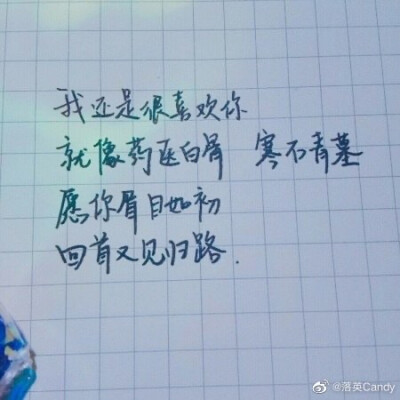 我还是很喜欢你
就像药医白骨 寒石青墓
愿你眉目如初
回首又见归路.
@落英Candy